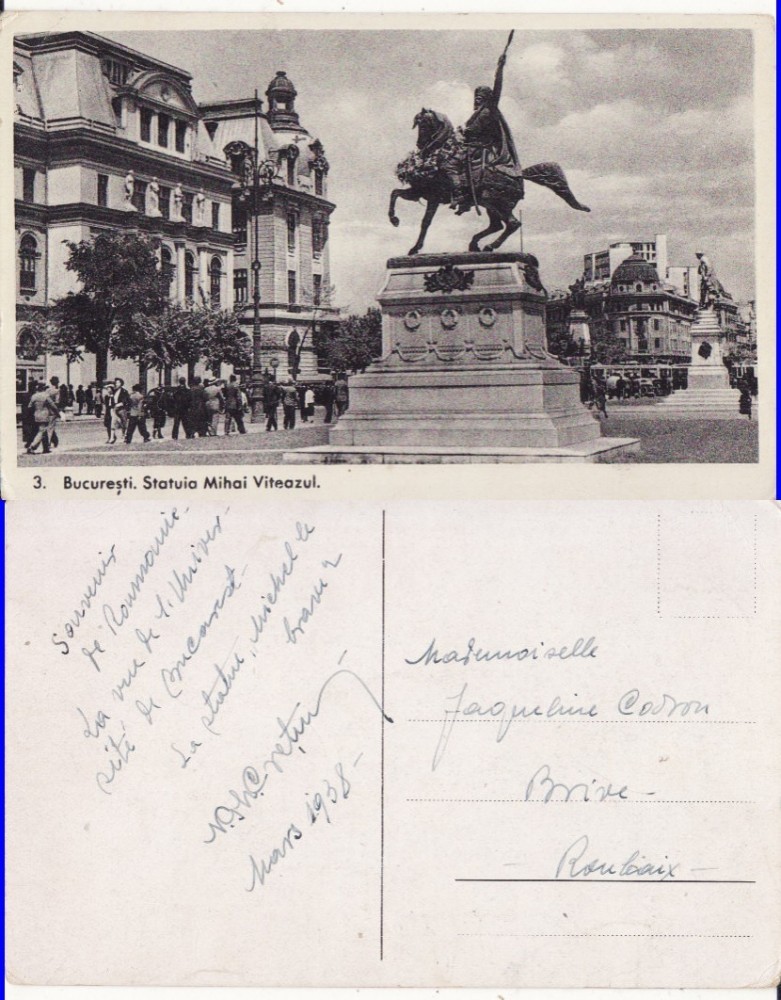 3. București. Statuia Mihai Viteazul.
Souvenir
de Roumanie-
La vue de l'Univer-
sité de Bucarest-
La statue „Michel le
brave"
Crețu
Mars 1938-
Mademoiselle
Jaqueline Codron
Brive-
- Roubaix -